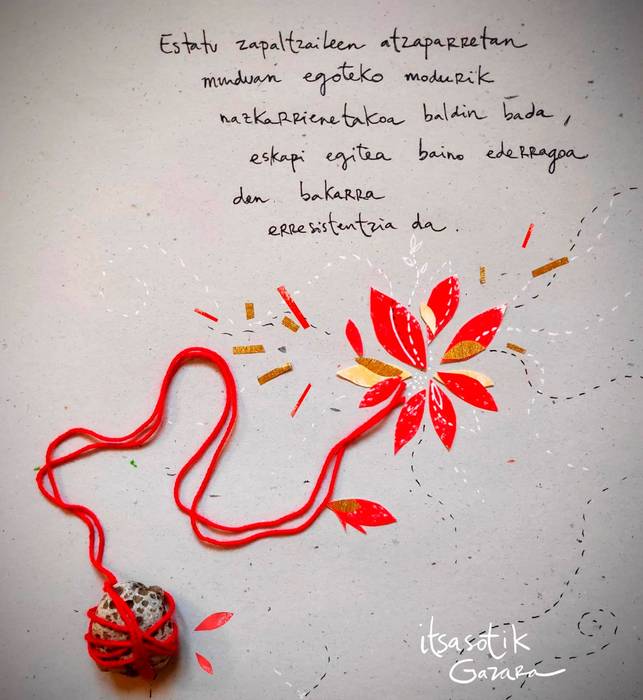 Estatu zapaltzaileen atzaparretan
munduan egoteko modurik
nazkarrienetakoa baldin bada,
eskapi egitea baino ederragoa
den bakarra
erresistentzia da.
itsasotik
Gazara